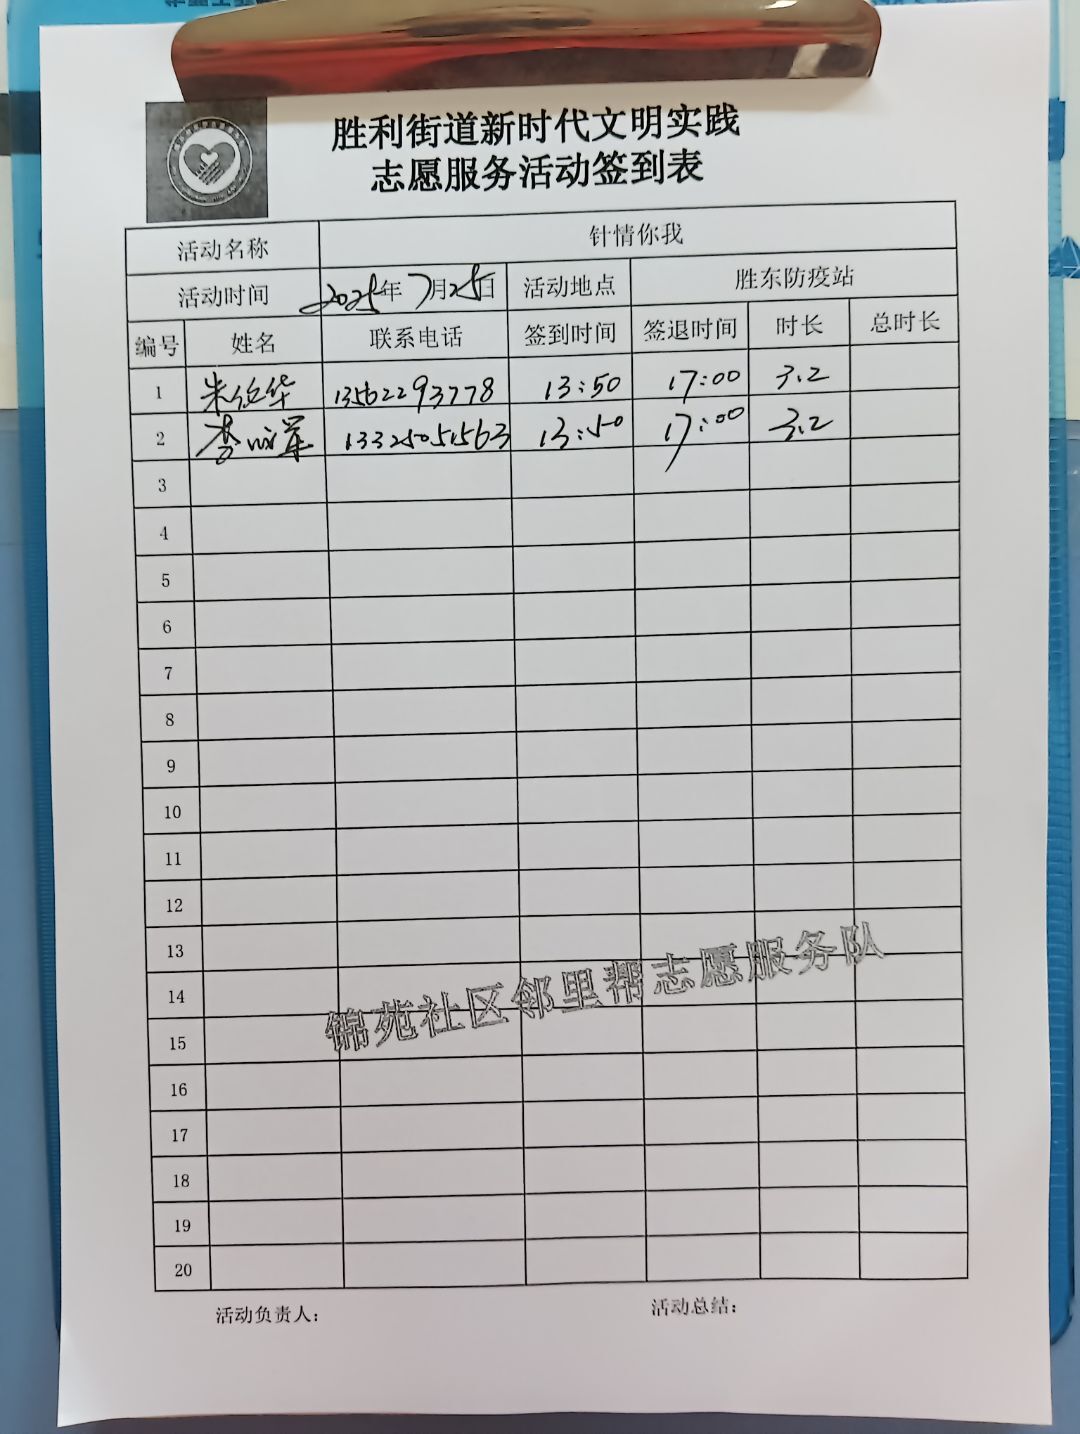 胜利街道新时代文明实践
志愿服务活动签到表
活动名称 针情你我
活动时间 2025年7月25日 活动地点 胜东防疫站
编号 姓名 联系电话 签到时间 签退时间 时长 总时长
1 朱伯华 13562293778 13:50 17:00 3.2
2 李 军 13325051563 13:50 17:00 3.2
3
4
5
6
7
8
9
10
11
12
13
14
锦苑社区邻里帮志愿服务队
15
16
17
18
19
20
活动负责人： 活动总结：